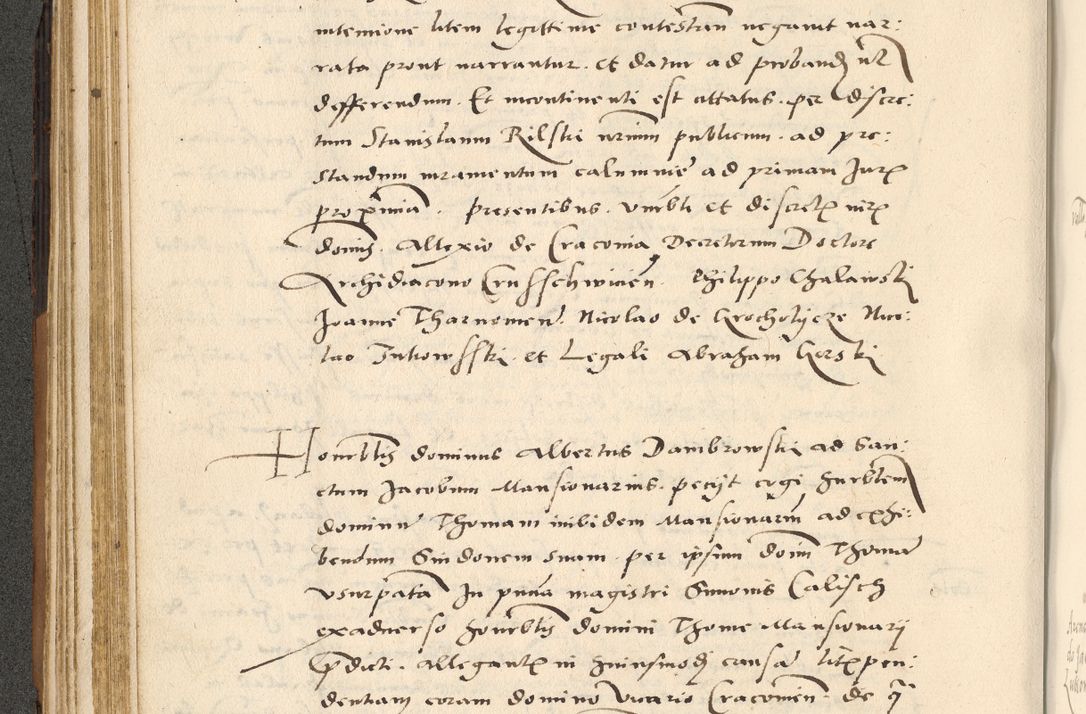 intencione litem legittime contestan negavit nar:
rata prout narrantur. et datur ad proband
defferendum. Et incontinenti est citatus. per discre:
tum Stanislaum Rilski publicum. ad pre:
standum iuramentum calumnie ad primam Jur
proxima. presentibus. et discret vir
domi. Allexio de Craconia Decretorum Doctore
Archidiacono Crusschwicien. Philippo Chalawski
Joanne Tharnomen. Nicolao de Grocholycze Nico:
lao et Legali Abraham Gorski
Honorblis dominus Albertus Dambrowski ad San:
ctum Jacobum Mansionarius. peciit cogi hurblem
dominum Thomam inibidem Mansionarium ad exhi:
bendum Sindonem suam. per ipsum domi Thomam
usurpatam In magistri Simonis Calisch
exadverso honorblis domini Thome Mansionarij
pdicti. allegant in huiusmodi causa litpen:
dentiam coram domino Vicario Cracovien. de